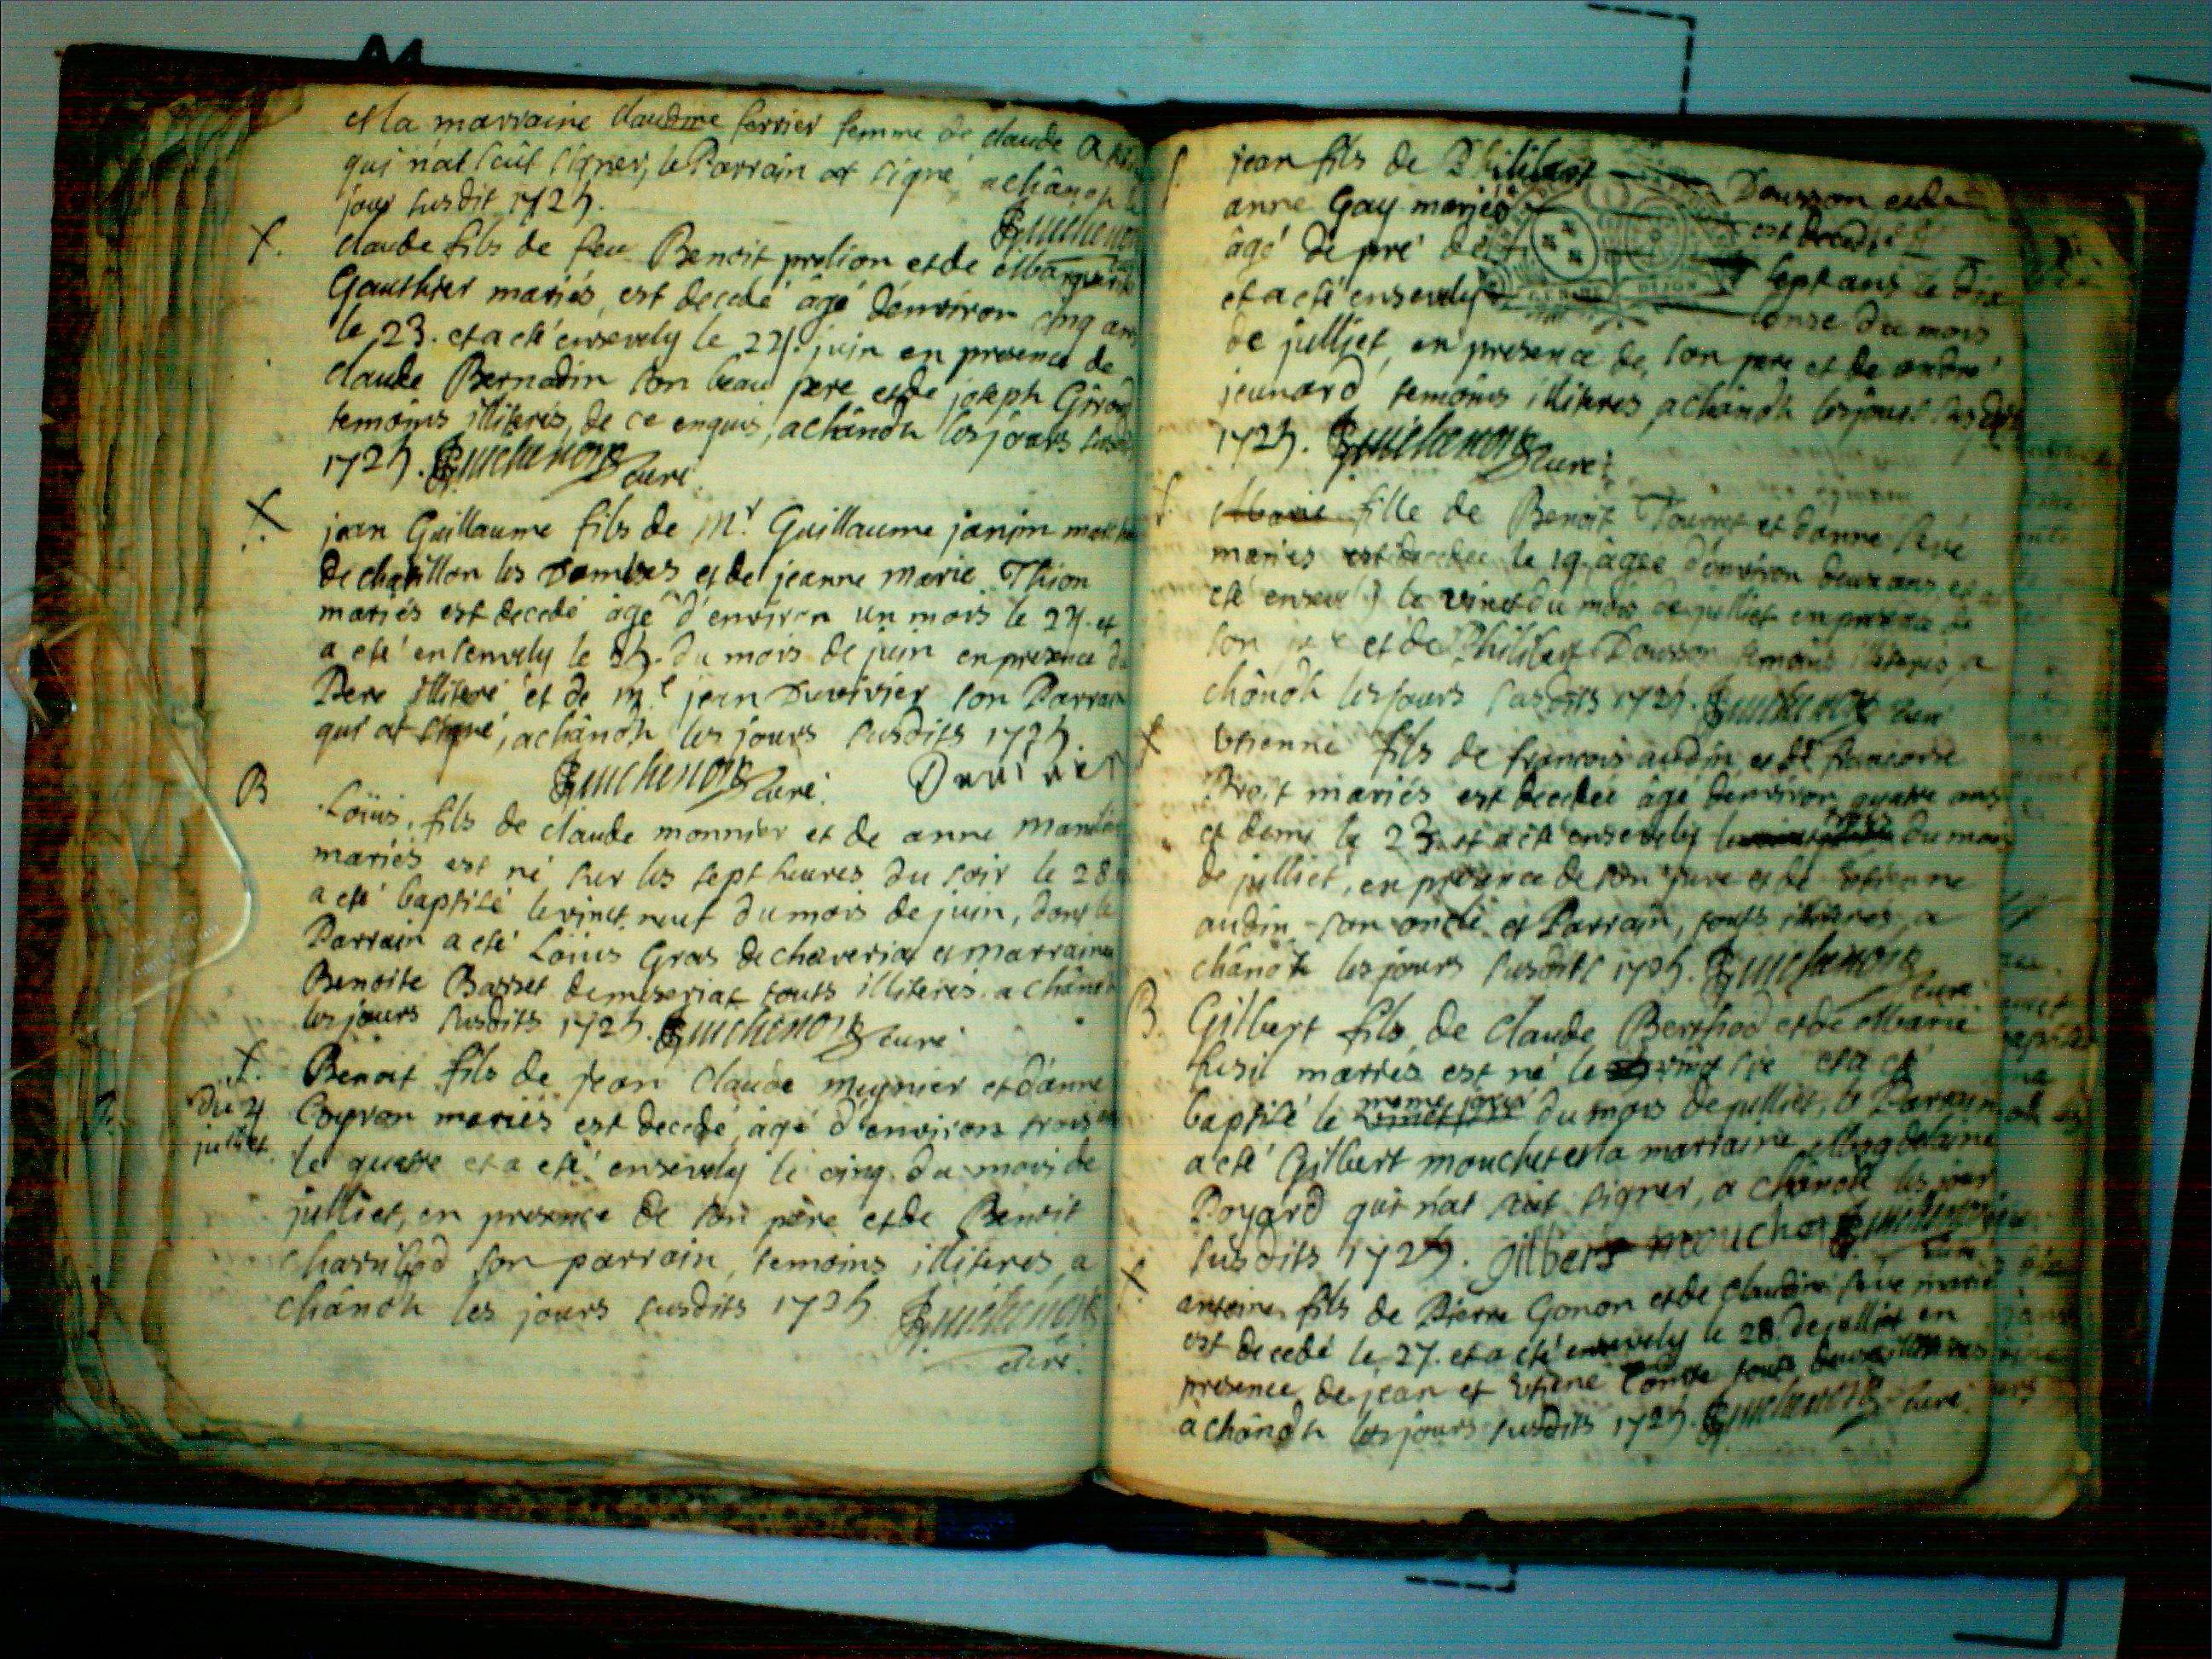 et la marraine claudine ferrier femme de claude
qui n'at sçut signer, le Parrain at signé a chânoh
jour susdit 1725.
Guichenon
+. claude fils de feu Benoit prelion et de Marguerite
Gauthier mariés, est decedé âgé d'environ cinq ans
le 23. et a eté ensevely le 24. juin en presence de
claude Bernadin son beau pere et de joseph Giron
temoins illiterés, de ce enquis, a chânoh les jours susdits
1725. Guichenon curé
+ jean Guillaume fils de Mr. Guillaume janin
de chatillon les Dombes et de jeanne marie Thion
mariés est decedé âgé d'environ un mois le 24. et
a eté ensevely le 25. du mois de juin en presence du
Pere illiteré et de Mr. jean Duvivier son Parrain
qui at signé, a chânoh les jours susdits 1725.
Guichenon curé. Duvivier
B Loüis, fils de claude monnier et de anne
mariés est né sur les sept heures du soir le 28
a eté baptisé le vinct neuf du mois de juin, dont le
Parrain a eté Loüis Gras de chaveriat et marraine
Benoite Basset de meseriat touts illiterés. a chânoh
les jours susdits 1725. Guichenon curé
+. Benoit fils de jean claude mugnier et d'anne
du 4 Coyron mariés est decedé âgé d'environ trois ans
julliet. le quatre et a eté ensevely le cinq du mois de
julliet, en presence de son père et de Benoit
charvibod son parrain, temoins illiterés, a
chânoh les jours susdits 1725 Guichenon
curé.
jean fils de Philibert Dousson et de
anne Gay mariés est decedé
âgé de pré de sept ans le dix
et a eté ensevely l'onse du mois
de julliet, en presence de son pere et de andré
jeunard temoins illiterés, a chânoh les jours susdits
1725. Guichenon curé
+. Marie fille de Benoit et d'anne
mariés est decedée le 19. âgée d'environ deux ans, et a
eté ensevely le vinct du mois de julliet en presence de
son pere et de Philibert Dousson temoins illiterés, a
chânoh les jours susdits 1725. Guichenon curé
+ Etienne fils de francois audin et de francoise
Broit mariés est decedée âgé d'environ quatre ans
et demi le 23. et a eté ensevely le du mois
de julliet, en presence de son pere et de Etienne
audin son oncle et Parrain, touts illiterés, a
chânoh les jours susdits 1725. Guichenon
curé
B. Gilbert fils de Claude Berthod et de Marie
fusil mariés est né le vinct six et a eté
baptisé le meme jour du mois de julliet, le Parrain
a eté Gilbert mouchet et la marraine Magdelaine
Poyard qui n'at sçut signer, a chânoh les jour
susdits 1725. gilbert mouchot Guichenon
curé
+ antoine fils de Pierre Gonon et de claudine mariés
est decedé le 27. et a eté ensevely le 28. de julliet en
presence de jean et Etiene Comte touts deux illiterés
a chânoh les jours susdits 1725. Guichenon curé.